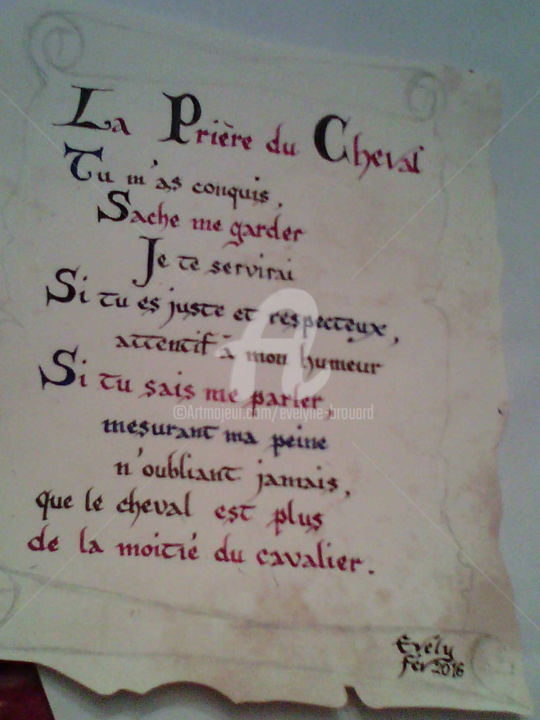 La Prière du Cheval
Tu m'as conquis,
Sache me garder
Je te servirai
Si tu es juste et respecteux,
attentif à mon humeur
Si tu sais me parler,
mesurant ma peine
n'oubliant jamais,
que le cheval est plus
de la moitié du cavalier.
©Artmajeur.com/evelyne-brouard
Evély
fev 2016